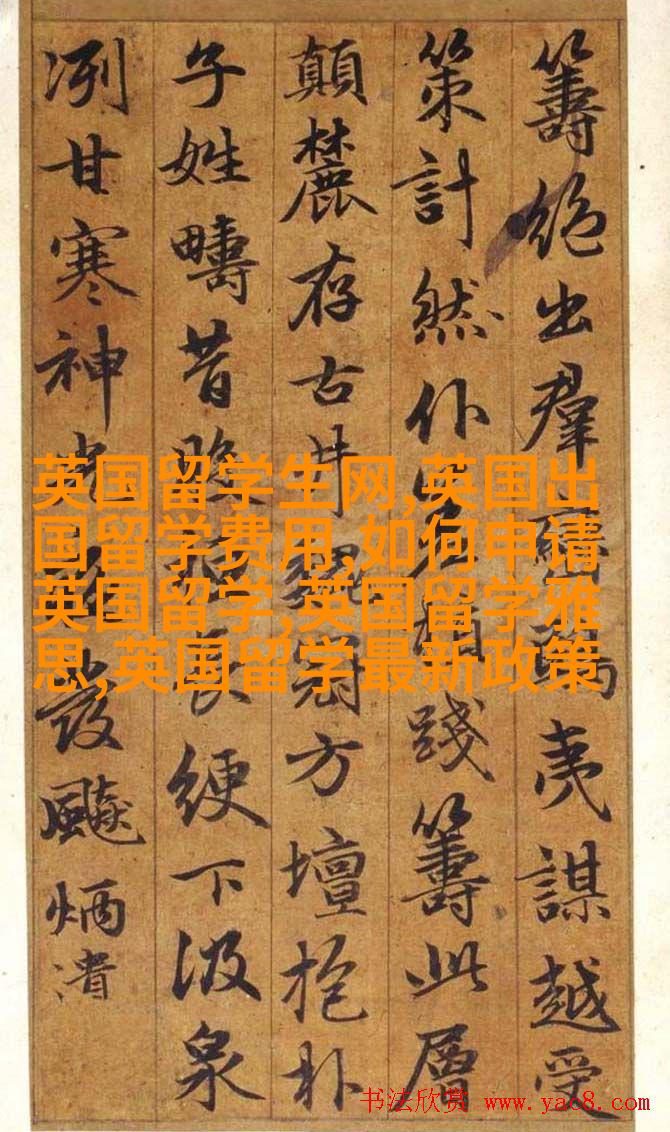 籌絕出羣
夷謀越受
策計然仆
踐籌此層
顛麓存古井
冠方壇抱朴
子姓疇昔
長綆下汲泉
冽甘寒神
發飈炳潰
英国留学生网,英国出
国留学费用,如何申请
英国留学,英国留学雅
思,英国留学最新政策
书法欣赏 www.yac8.com